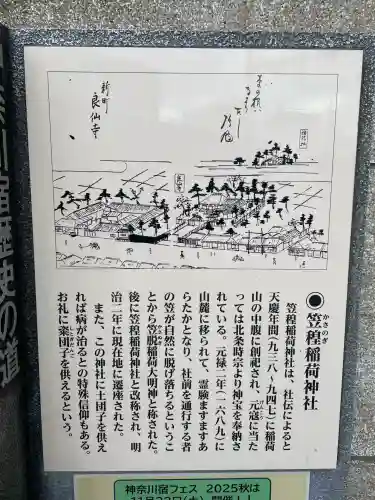 神奈川宿歴史の道
新町
良仙寺
◉笠䅣稲荷神社
かさのぎ
笠䅣稲荷神社は、社伝によると
天慶年間(九三八〜九四七)に稲荷
山の中腹に創祀され、元寇に当た
っては北条時宗より神宝を奉納さ
れている。元禄二年(一六八九)に
山麓に移られて、霊験ますますあ
らたかとなり、社前を通行する者
の笠が自然に脱げ落ちるというこ
とから笠脱稲荷大明神と称された。
後に笠䅣稲荷神社と改称され、明
治二年に現在地に遷座された。
また、この神社に土団子を供え
れば病が治るとの特殊信仰もある。
お礼に粢団子を供えるという。
神奈川宿フェス 2025秋は